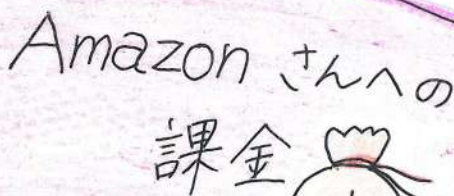 Amazonさんへの
課金